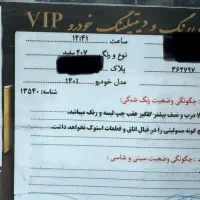 کارشناسی رنگ و دیتیلینگ خودرو VIP
ساعت ۱۲:۴۱
۳۶۲۷۹۷
نوع و رنگ ۲۰۷ سفید
پلاک
مدل خودرو ۱۴۰۱
شناسه: ۱۳۵۴۰
: چگونگی وضعیت رنگ شدگی:
لا درب و نصف بیشتر گلگیر عقب چپ لیسه و رنگ میباشد.
چ گونه مسولیتی را در قبال اتاق و قطعات استوک نخواهد داشت.
: چگونگی وضعیت سینی و شاسی :